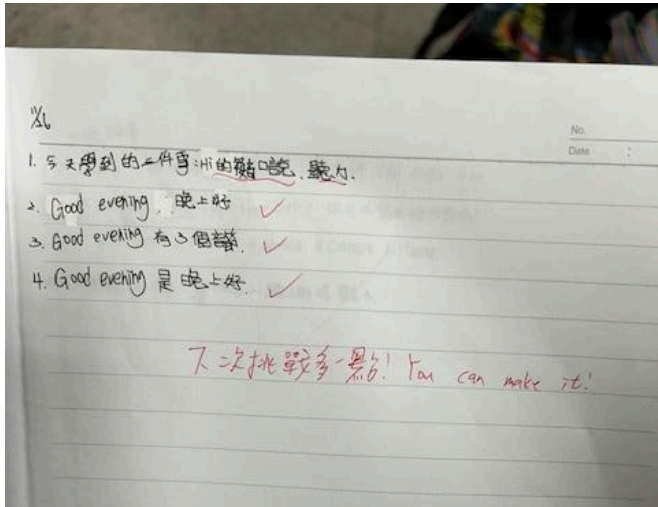 11/26
No.
Date :
1. 今天學到的一件事:Hi的 聽力.
2. Good evening. 晚上好
3. Good evening 有3個音節.
4. Good evening 是晚上好.
下次挑戰多一點! You can make it!